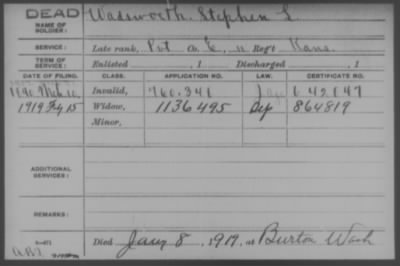 DEAD
NAME OF SOLDIER: Wadsworth, Stephen L.
SERVICE: Late rank, Pvt Co. C, 11 Reg't Kans.
TERM OF SERVICE: Enlisted , 1 Discharged , 1
DATE OF FILING. CLASS. APPLICATION NO. LAW. CERTIFICATE NO.
1890 Invalid, 760.341 642647
1919 Fby 15 Widow, 1136495 864819
Minor,
ADDITIONAL SERVICES:
REMARKS:
Died Jany 8, 1919, at Burton Wash